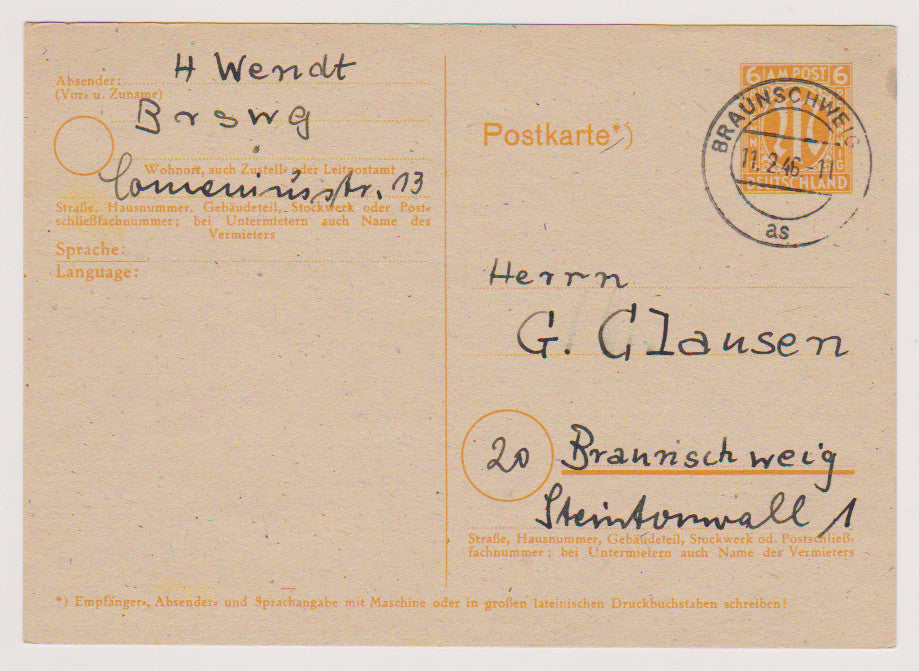 Absender: H Wendt
(Vor- u. Zuname)
Brswg
Wohnort, auch Zustell- oder Leitpostamt
Comeniusstr. 13
Straße, Hausnummer, Gebäudeteil, Stockwerk oder Post-
schließfachnummer; bei Untermietern auch Name des
Vermieters
Sprache:
Language:
Postkarte*)
6 AM POST 6
DEUTSCHLAND
BRAUNSCHWEIG
11.2.46.-11
as
Herrn
G. Clausen
20 Braunschweig
Steintorwall 1
Straße, Hausnummer, Gebäudeteil, Stockwerk od. Postschließ-
fachnummer; bei Untermietern auch Name des Vermieters
*) Empfänger-, Absender- und Sprachangabe mit Maschine oder in großen lateinischen Druckbuchstaben schreiben!